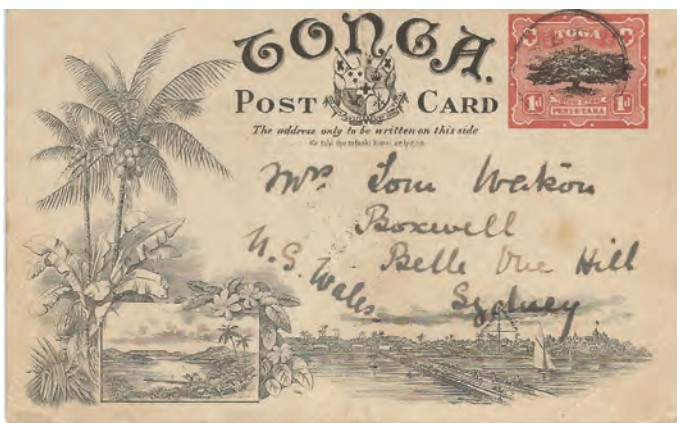 TONGA.
POST CARD
The address only to be written on this side
TOGA
1d 1d
PENI E TAHA
Mrs Tom Watson
Boxwell
Belle Vue Hill
Sydney
N.S. Wales